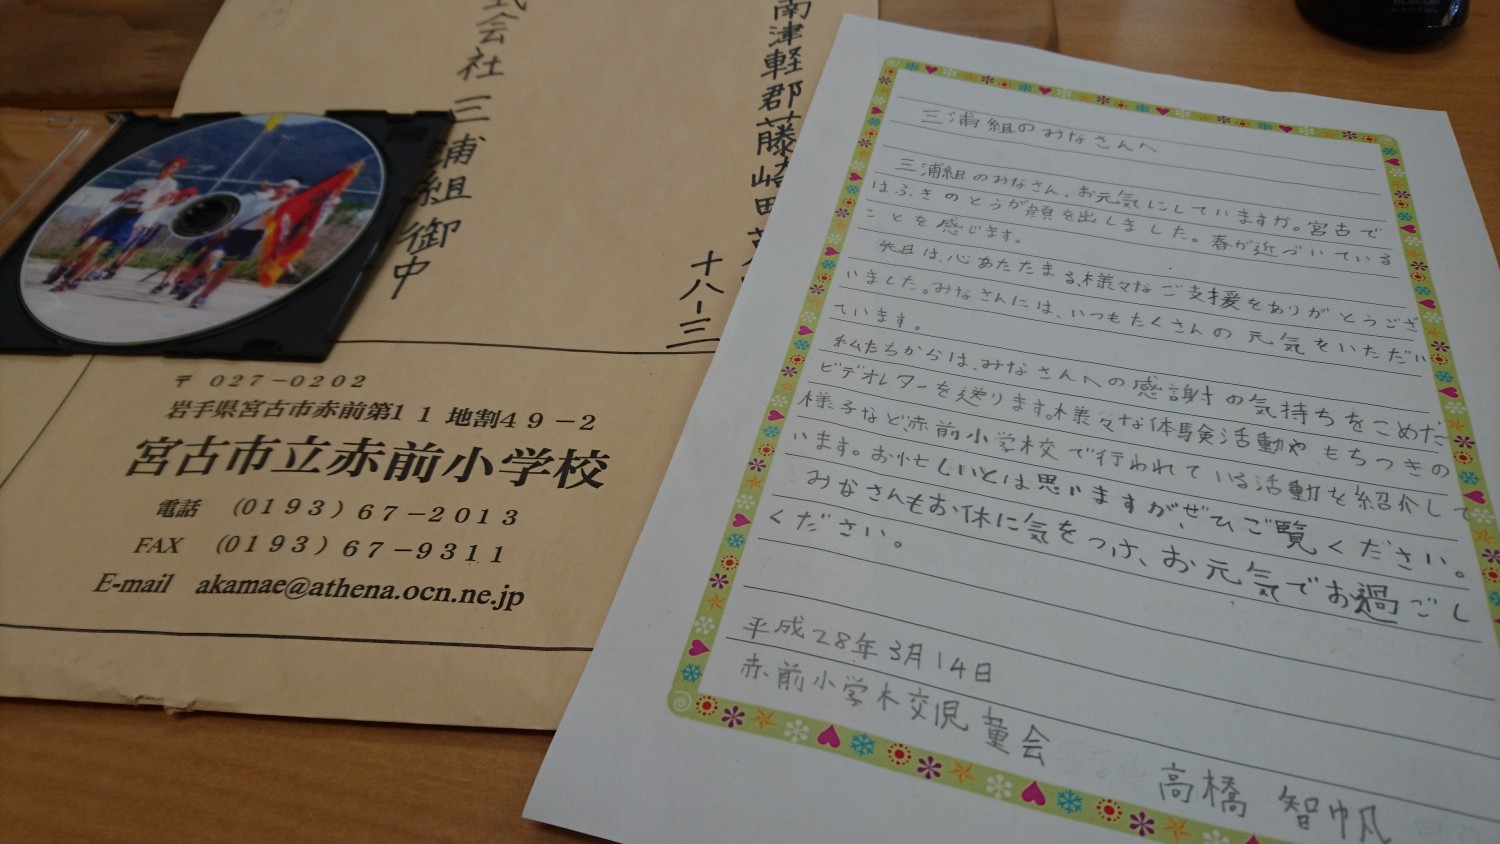 南津軽郡藤崎町
十八-三
会社 三浦組 御中
〒 027-0202
岩手県宮古市赤前第11 地割49-2
宮古市立赤前小学校
電話 (0193)67-2013
FAX (0193)67-9311
E-mail akamae@athena.ocn.ne.jp
三浦組のみなさんへ
三浦組のみなさん、お元気にしていますか。宮古で
はふきのとうが顔を出しました。春が近づいている
ことを感じます。
先日は、心あたたまる、様々なご支援をありがとうござ
いました。みなさんには、いつもたくさんの元気をいただい
ています。
私たちからは、みなさんへの感謝の気持ちをこめた
ビデオレターを送ります。様々な体験活動やもちつきの
様子など、赤前小学校で行われている活動を紹介して
います。お忙しいとは思いますが、ぜひご覧ください。
みなさんもお体に気をつけ、お元気でお過ごし
ください。
平成28年3月14日
赤前小学校児童会
高橋 智帆